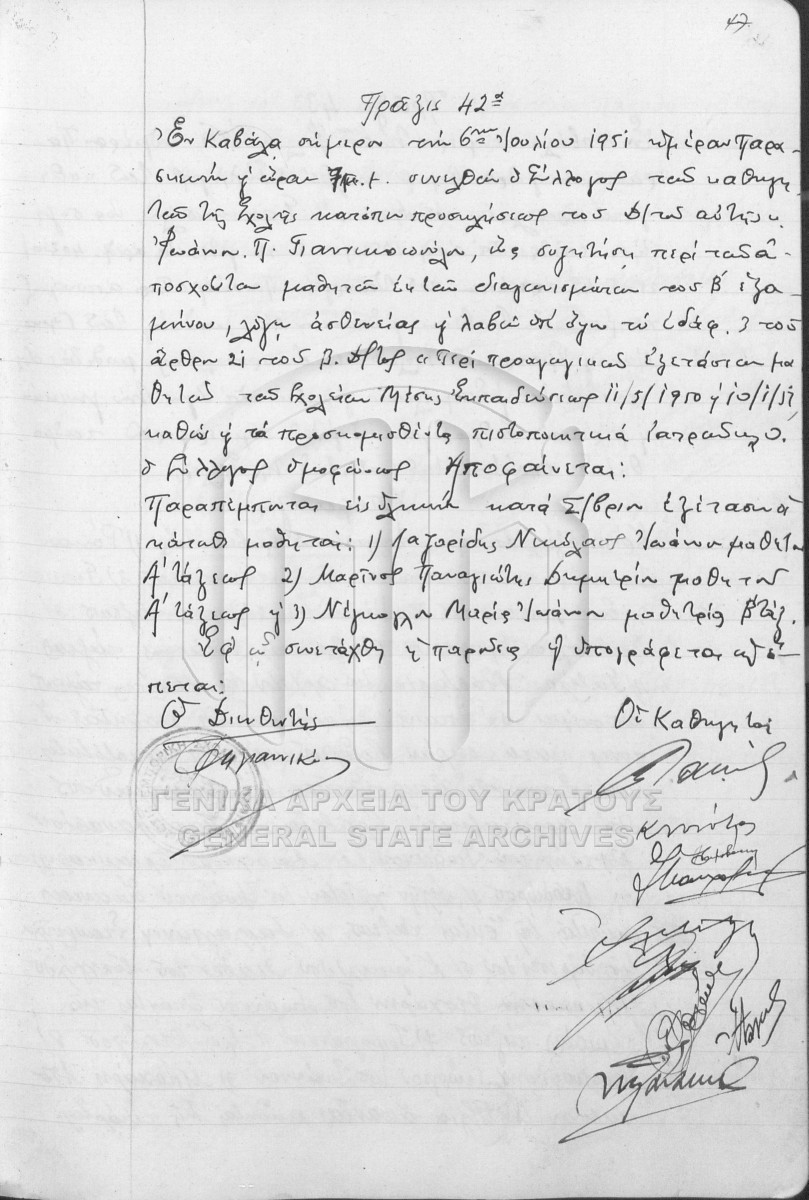 47
Πρᾶξις 42α
Ἐν Καβάλᾳ σήμερον τὴν 6ην Ἰουλίου 1951 ἡμέραν Παρα-
σκευὴν καὶ ὥραν 7 μ.μ. συνελθὼν ὁ Σύλλογος τῶν καθηγη
τῶν τῆς Σχολῆς κατόπιν προσκλήσεως τοῦ Δ/τοῦ αὐτῆς κ.
Ἰωάννου Π. Γιαννικοπούλου, εἰς συζήτησιν περὶ τῶν ἀ-
ποσχόντων μαθητῶν ἐκ τῶν διαγωνισμάτων τοῦ Β΄ ἑξα-
μήνου, λόγῳ ἀσθενείας καὶ λαβὼν ὑπ' ὄψιν τὸ ἐδάφ. 3 τοῦ
ἄρθρου 21 τοῦ Β. Δ/τος «Περὶ προαγωγικῶν ἐξετάσεων μα
θητῶν τῶν Σχολείων Μέσης Ἐκπαιδεύσεως 11/5/1950 καὶ 10/1/51,
καθὼς καὶ τὰ προσκομισθέντα πιστοποιητικὰ ἰατροῦ
ὁ Σύλλογος ὁμοφώνως Ἀποφαίνεται:
Παραπέμπονται εἰς ὁλικὴν κατὰ Σ/βριον ἐξέτασιν οἱ
κάτωθι μαθηταί: 1) Λαζαρίδης Νικόλαος Ἰωάννου μαθητὴς
Α΄ τάξεως 2) Μαρῖνος Παναγιώτης Δημητρίου μαθητὴς
Α΄ τάξεως καὶ 3) Μαρία Ἰωάννου μαθήτρια Β΄ τάξ.
Ἐφ' ᾧ συνετάχθη ἡ παροῦσα καὶ ὑπογράφεται ὡς ἕ-
πεται:
Ὁ Διευθυντής
Οἱ Καθηγηταί
ΓΕΝΙΚΑ ΑΡΧΕΙΑ ΤΟΥ ΚΡΑΤΟΥΣ
GENERAL STATE ARCHIVES